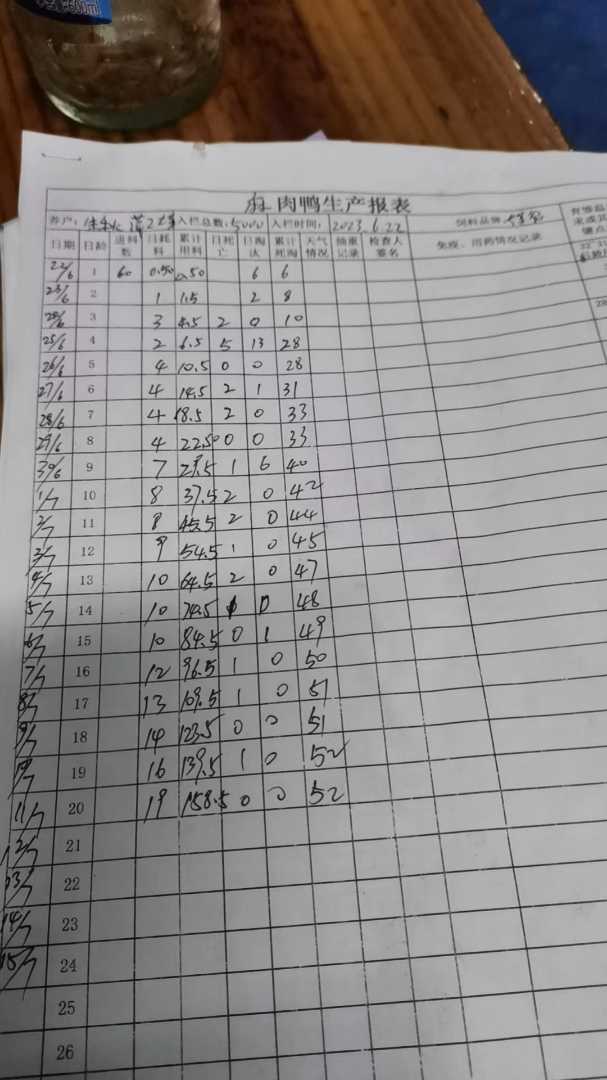 500ml
麻 肉鸭生产报表
养户： 入栏总数：5000 入栏时间：2023.6.22 饲料品牌
日期 日龄 进料数 日耗料 累计用料 日死亡 日淘汰 累计死淘 天气情况 抽重记录 检查人签名 免疫、用药情况记录
22/6 1 60 0.50 0.50 6 6
23/6 2 1 1.5 2 8
24/6 3 3 4.5 2 0 10
25/6 4 2 6.5 5 13 28
26/6 5 4 10.5 0 0 28
27/6 6 4 14.5 2 1 31
28/6 7 4 18.5 2 0 33
29/6 8 4 22.50 0 0 33
30/6 9 7 29.5 1 6 40
1/7 10 8 37.5 2 0 42
2/7 11 8 45.5 2 0 44
3/7 12 9 54.5 1 0 45
4/7 13 10 64.5 2 0 47
5/7 14 10 74.5 1 0 48
6/7 15 10 84.5 0 1 49
7/7 16 12 96.5 1 0 50
8/7 17 13 109.5 1 0 51
9/7 18 14 123.5 0 0 51
10/7 19 16 139.5 1 0 52
11/7 20 19 158.5 0 0 52
12/7 21
13/7 22
14/7 23
15/7 24
25
26